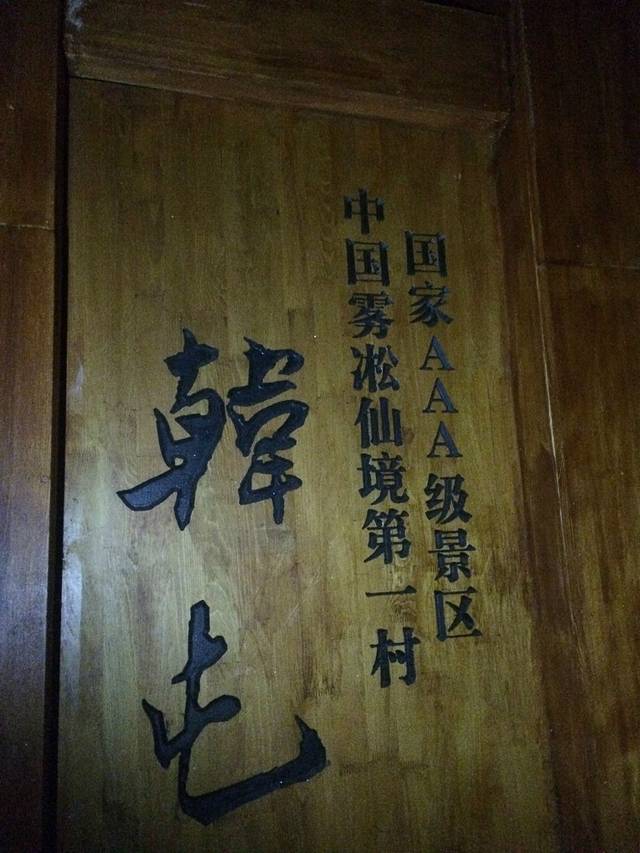 国家AAA级景区
中国雾凇仙境第一村
韓屯